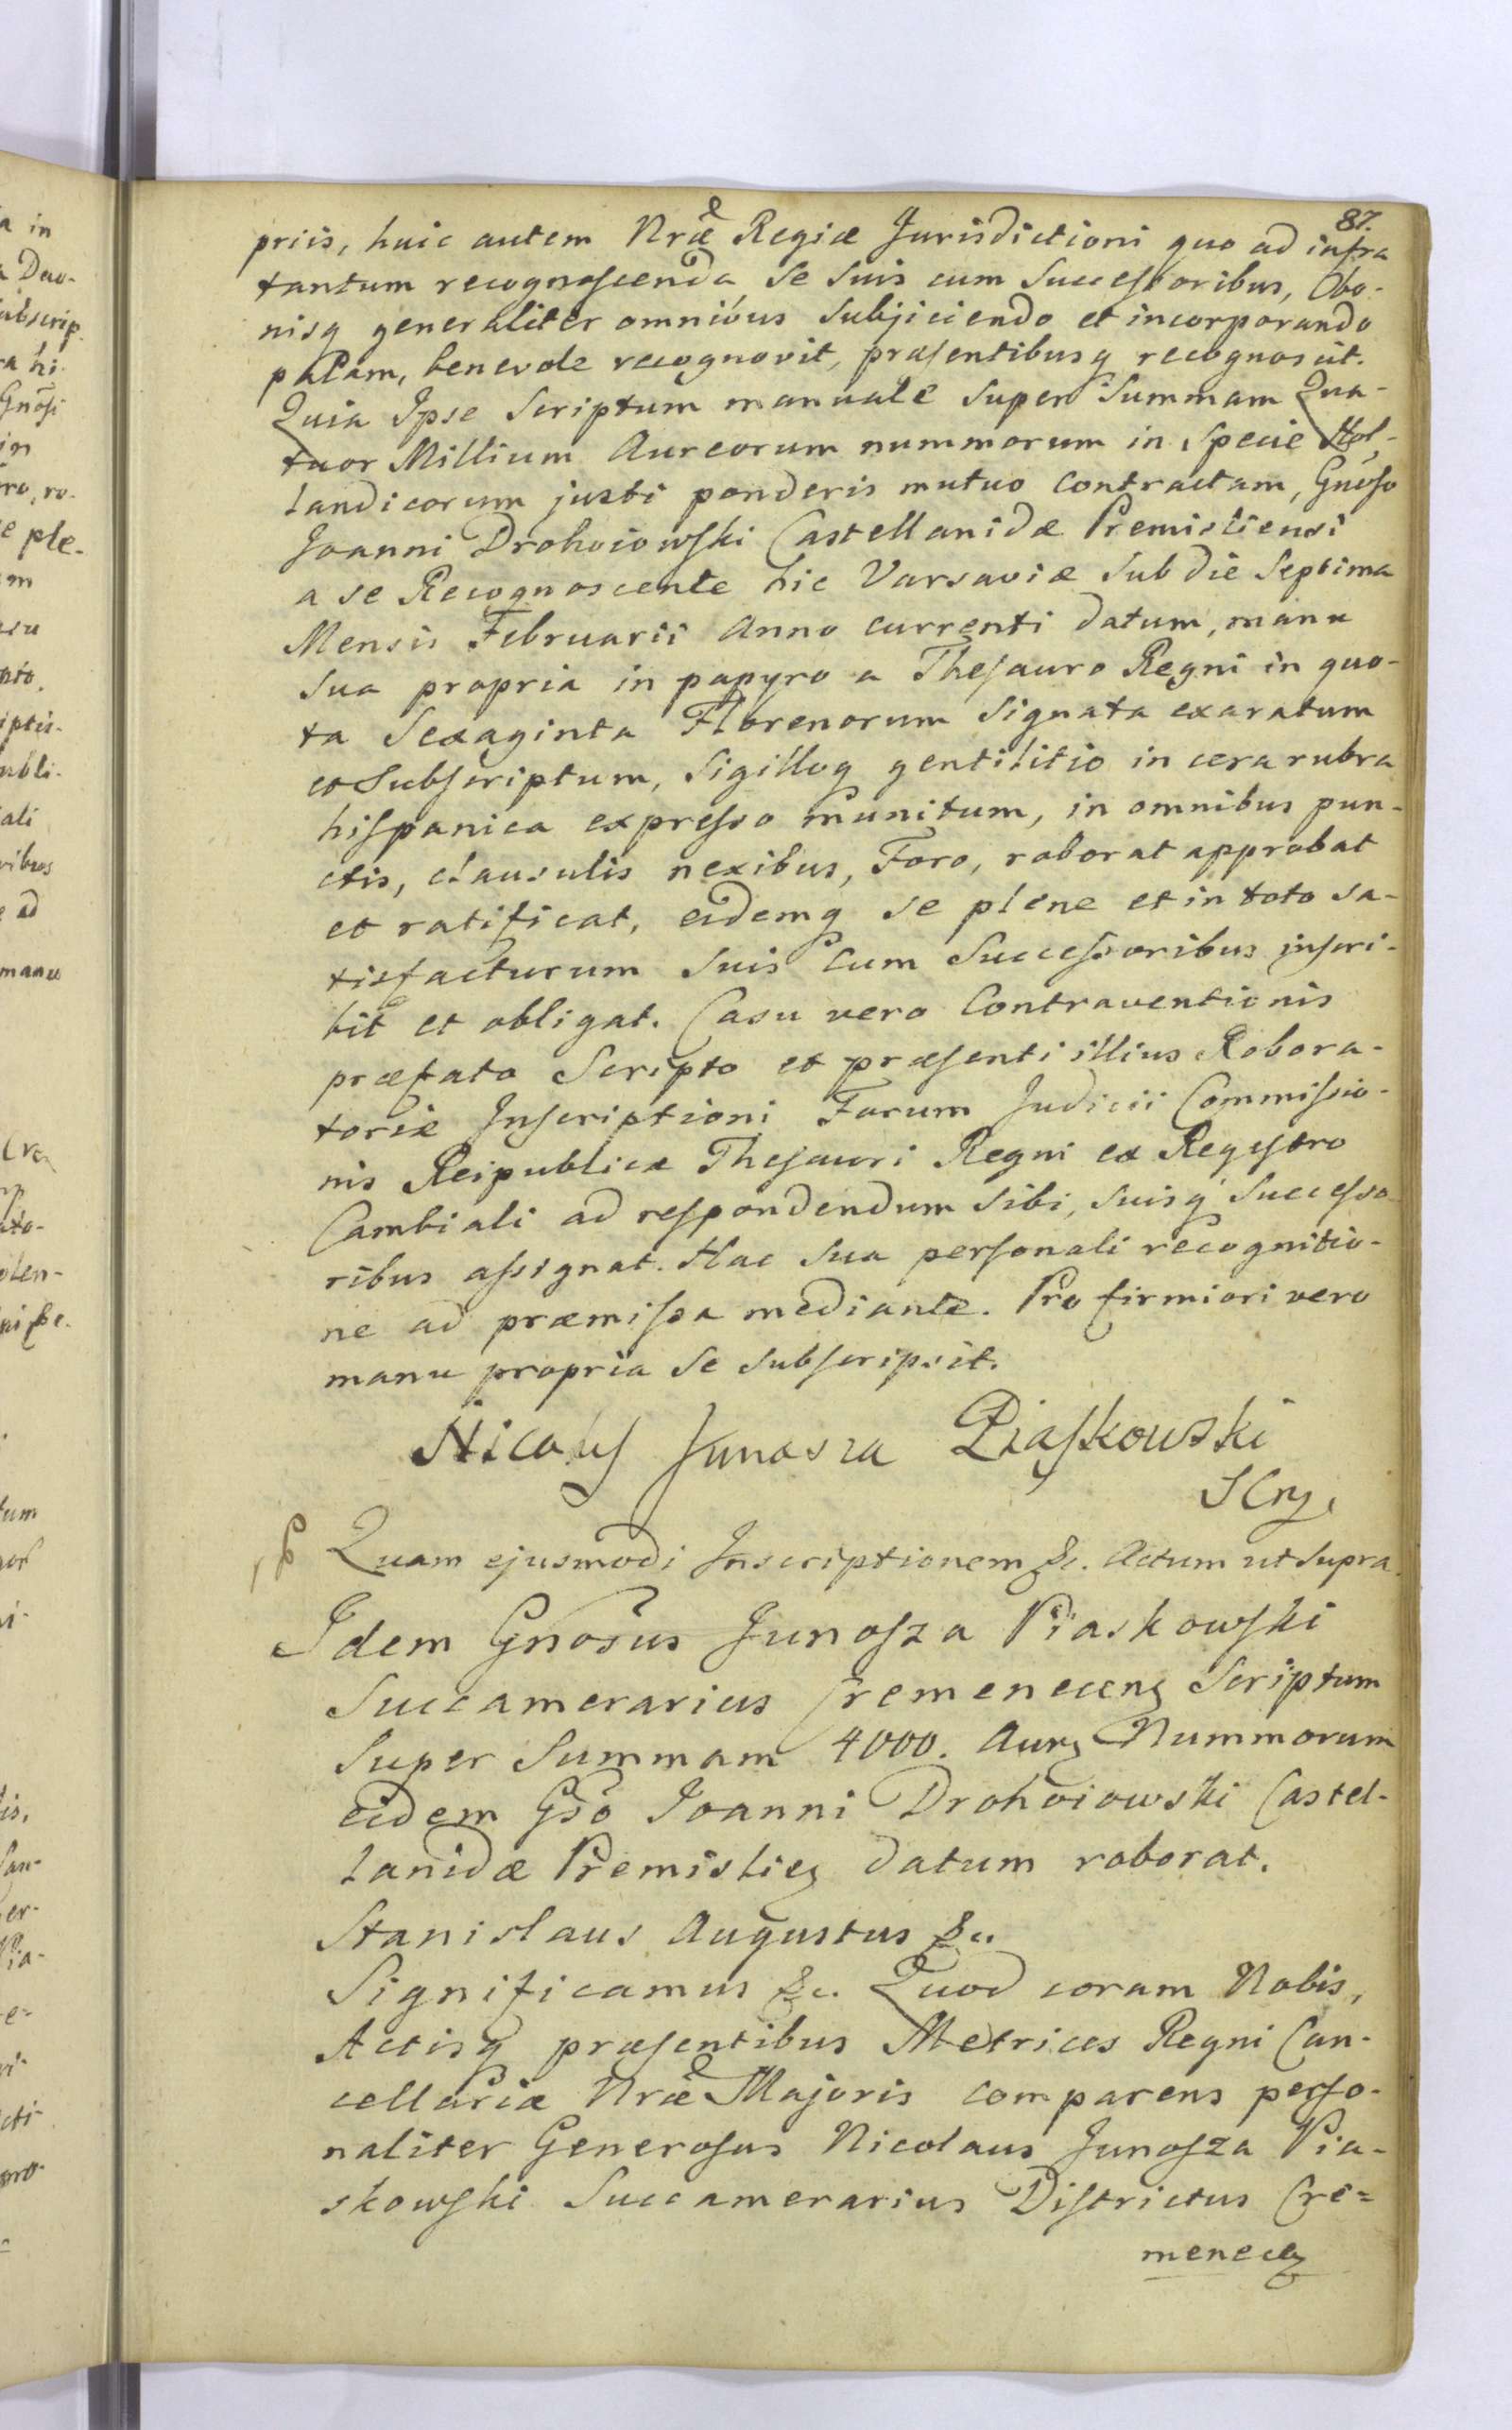 87.
priis, huic autem Nræ Regiæ Jurisdictioni quo ad infra
tantum recognoscenda se suis cum Successoribus, Obo-
nisq generaliter omnibus subjiciendo et incorporando
palam, benevole recognovit, præsentibusq recognoscit.
Quia Ipse Scriptum manuale super Summam Qua-
tuor Millium Aureorum nummorum in Specie Hol-
landicorum justi ponderis mutuo Contractam, Gnoso
Joanni Drohoiowski Castellanidæ Premisliensi
a se Recognoscente hic Varsaviæ sub die Septima
Mensis Februarii Anno currenti datum, manu
sua propria in papyro a Thesauro Regni in quo-
ta Sexaginta Florenorum signata exaratum
et Subscriptum, Sigilloq gentilitio in cera rubra
hispanica expresso munitum, in omnibus pun-
ctis, clausulis nexibus, Foro, roborat approbat
et ratificat, eidemq se plene et in toto sa-
tisfacturum suis cum Successoribus inscri-
bit et obligat. Casu vero Contraventionis
præfato Scripto et præsenti illius Robora-
toriæ Inscriptioni Forum Judicii Commissio-
nis Reipublicæ Thesauri Regni ex Regestro
Cambiali ad respondendum sibi, suisq Successo-
ribus assignat. Hac sua personali recognitio-
ne ad præmissa mediante. Pro firmiori vero
manu propria se subscripsit.
Nicolaus Junosza Piaskowski
Quam ejusmodi Inscriptionem &c. Actum ut supra.
Idem Gnosus Junosza Piaskowski
Succamerarius Cremenecens Scriptum
super Summam 4000. Aur Nummorum
eidem Gso Joanni Drohoiowski Castel-
lanidæ Premislien datum roborat.
Stanislaus Augustus &c.
Significamus &c. Quod coram Nobis,
Actisq præsentibus Metrices Regni Can-
cellariæ Nræ Majoris comparens perso-
naliter Generosus Nicolaus Junosza Pia-
skowski Succamerarius Districtus Cre=
menecen